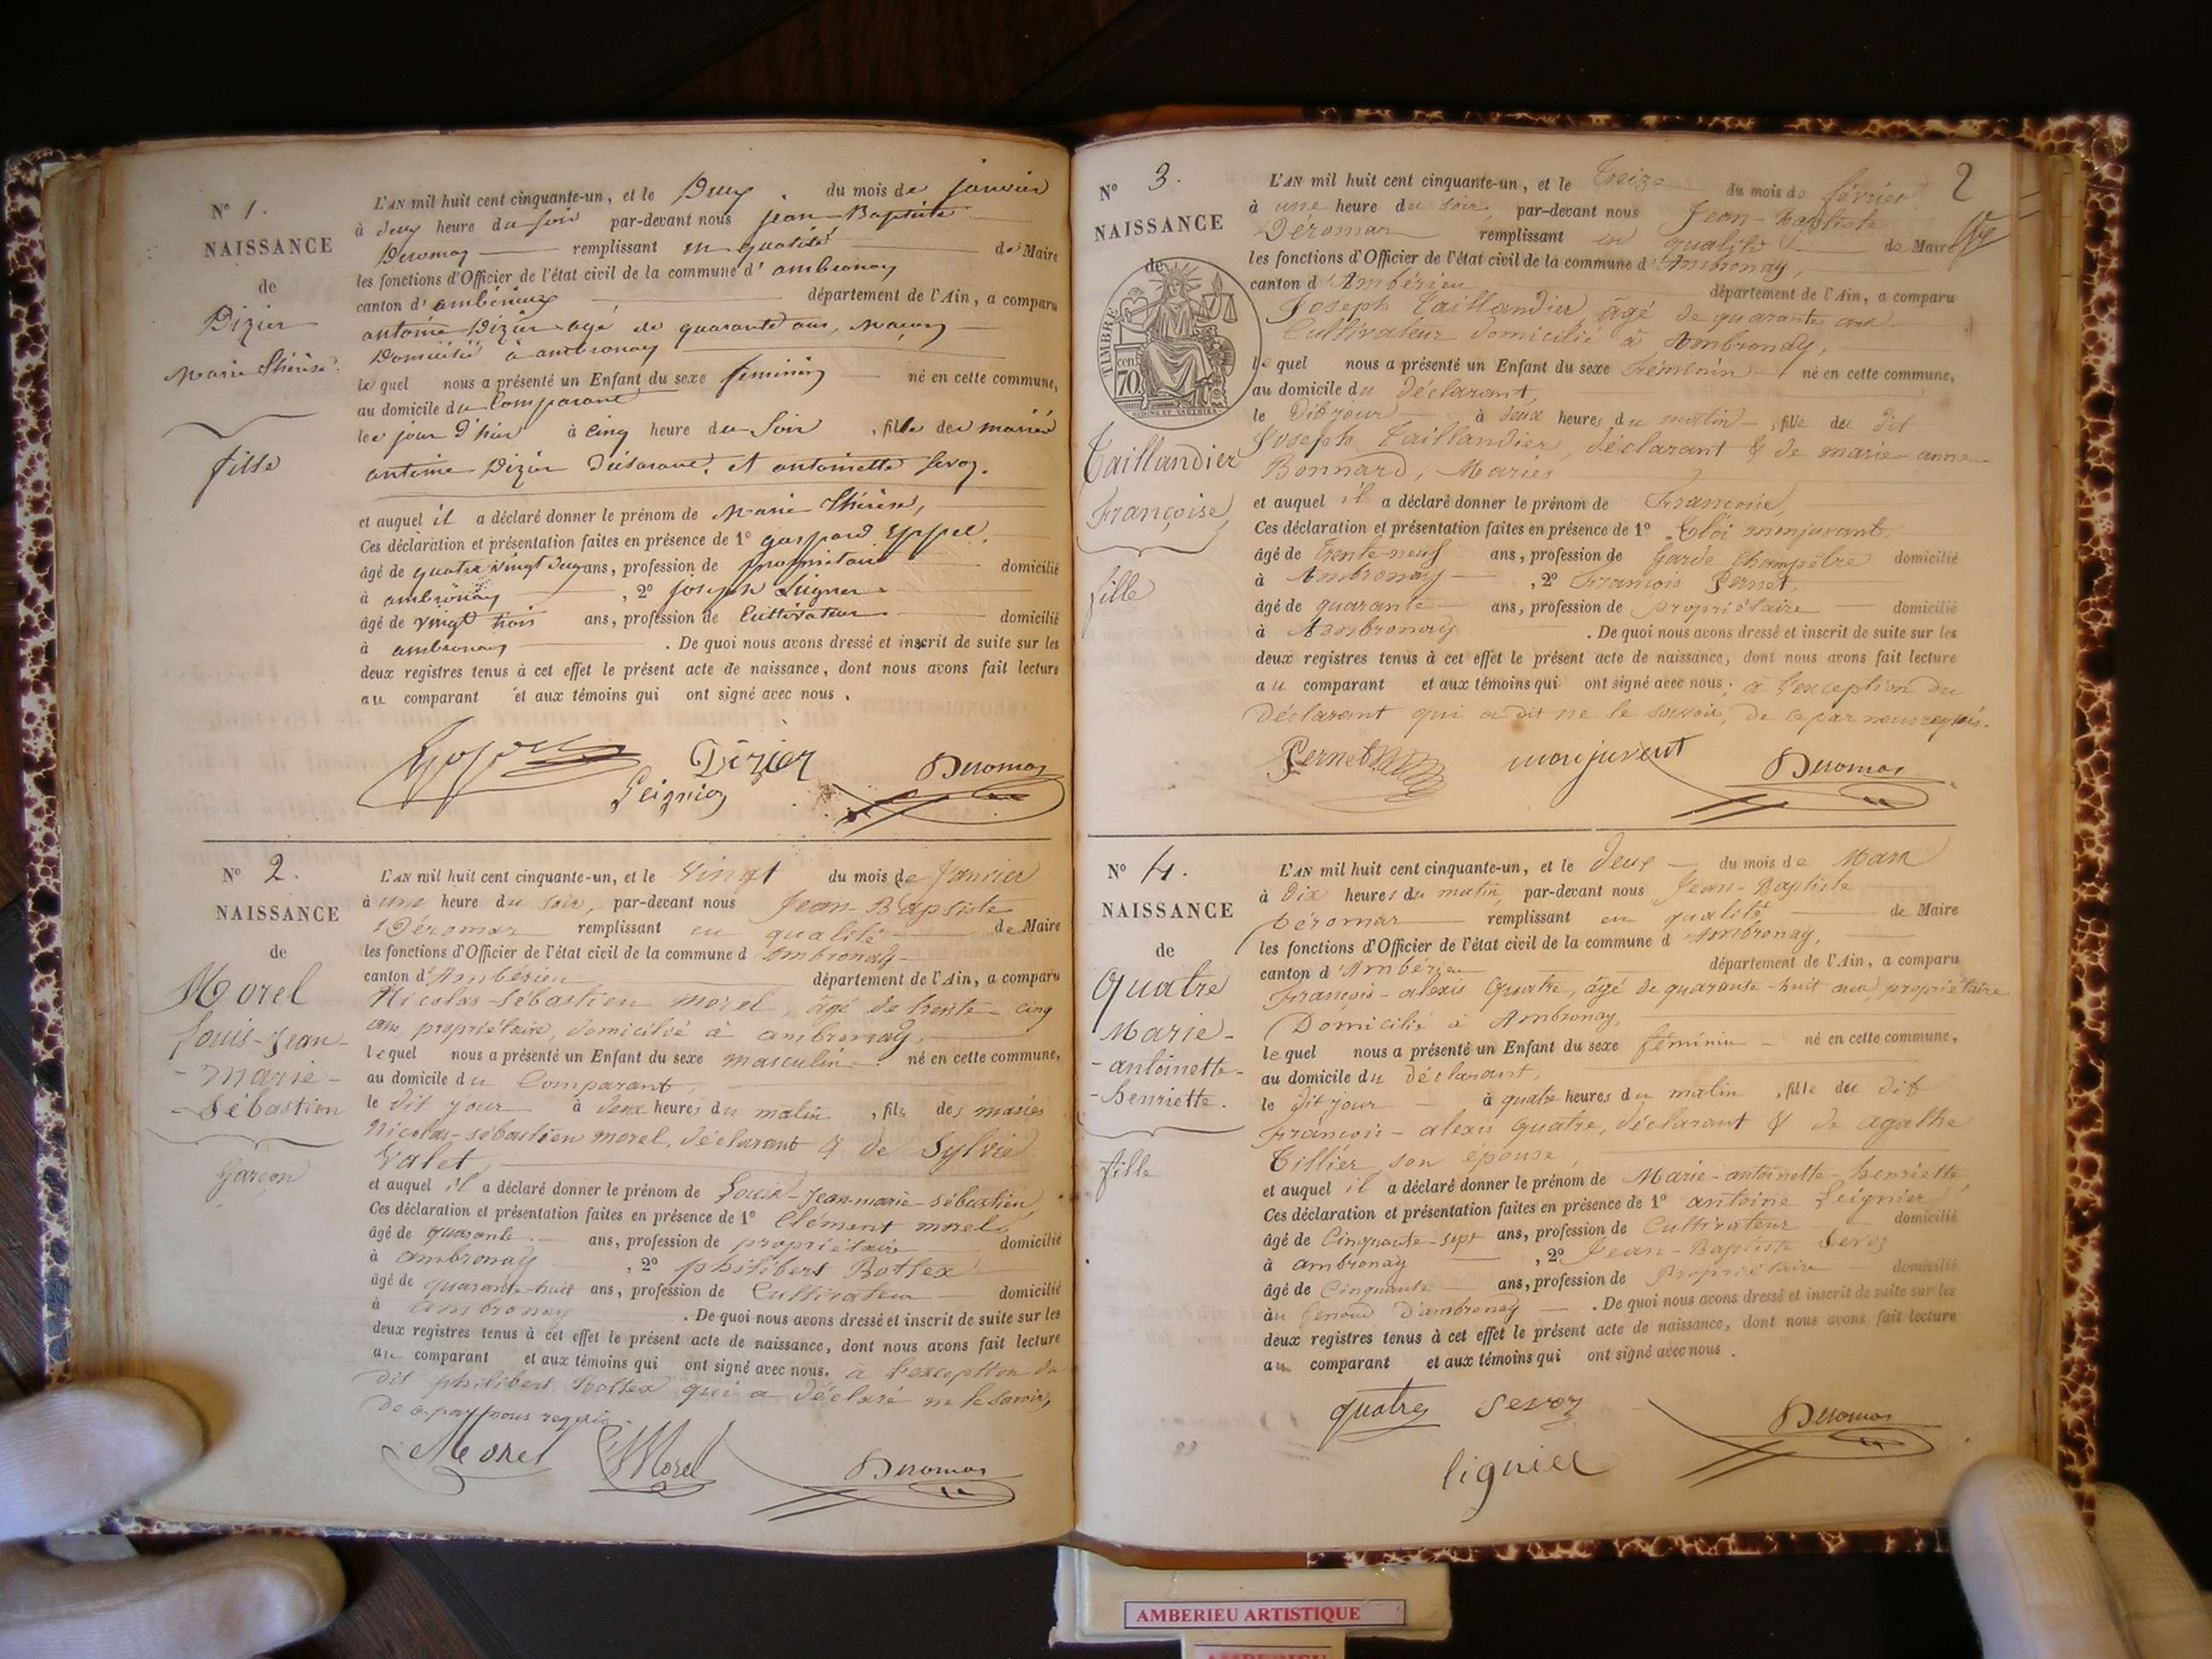 N° 1.
NAISSANCE
de
Dizier
Marie Thérèse.
fille
L'AN mil huit cent cinquante-un, et le Deux . du mois de janvier
à deux heure du soir par-devant nous jean-Baptiste
Deromas remplissant en qualité de Maire
les fonctions d'Officier de l'état civil de la commune d' ambronay
canton d' ambérieux département de l'Ain, a comparu
antoine Dizier agé de quarante ans, maçon
Domicilié à ambronay
le quel nous a présenté un Enfant du sexe feminin né en cette commune,
au domicile du Comparant
le jour d'hier à cinq heure du soir , fille des mariés
antoine Dizier déclarant, et antoinette Sevoz.
et auquel il a déclaré donner le prénom de Marie Thérèse,
Ces déclaration et présentation faites en présence de 1° gaspard
âgé de quatre vingt deux ans, profession de propriétaire domicilié
à ambronay , 2° joseph
âgé de vingt trois ans, profession de Cultivateur domicilié
à ambronay . De quoi nous avons dressé et inscrit de suite sur les
deux registres tenus à cet effet le présent acte de naissance, dont nous avons fait lecture
au comparant et aux témoins qui ont signé avec nous .
Dizier Deromas
Leignier
N° 2.
NAISSANCE
de
Morel
Louis-Jean-
-marie-
-Sébastien
Garçon
L'AN mil huit cent cinquante-un, et le Vingt du mois de Janvier
à une heure du soir, par-devant nous Jean-Baptiste
Déromas remplissant en qualité de Maire
les fonctions d'Officier de l'état civil de la commune d Ambronay
canton d'Ambérieu département de l'Ain, a comparu
Nicolas-Sébastien morel, âgé de trente-cinq
ans, propriétaire, domicilié à ambronay,
lequel nous a présenté un Enfant du sexe masculin né en cette commune,
au domicile du Comparant,
le dit jour à deux heures du matin , fils des mariés
Nicolas-sébastien morel, déclarant & de Sylvie
Valet
et auquel il a déclaré donner le prénom de Louis-Jean-marie-sébastien,
Ces déclaration et présentation faites en présence de 1° Clément morel,
âgé de quarante ans, profession de propriétaire domicilié
à ambronay , 2° philibert Bottex
âgé de quarante-huit ans, profession de Cultivateur domicilié
à ambronay . De quoi nous avons dressé et inscrit de suite sur les
deux registres tenus à cet effet le présent acte de naissance, dont nous avons fait lecture
au comparant et aux témoins qui ont signé avec nous. à l'exception du
dit philibert Bottex qui a déclaré ne le savoir,
de ce par nous requis.
Morel Morel Deromas
2
N° 3.
NAISSANCE
de
TIMBRE
70
Taillandier
Françoise,
fille
L'AN mil huit cent cinquante-un, et le Treize du mois de février
à une heure du soir, par-devant nous Jean-Baptiste
Déromas remplissant en qualité de Maire
les fonctions d'Officier de l'état civil de la commune d'Ambronay,
canton d'Ambérieu département de l'Ain, a comparu
Joseph Taillandier, âgé de quarante ans
Cultivateur domicilié à Ambronay,
le quel nous a présenté un Enfant du sexe Féminin né en cette commune,
au domicile du déclarant,
le dit jour à deux heures du matin , fille du dit
Joseph Taillandier, déclarant & de marie-anne
Bonnard, Mariés
et auquel il a déclaré donner le prénom de Françoise,
Ces déclaration et présentation faites en présence de 1° Eloi monjuvent
âgé de trente-neuf ans, profession de Garde Champêtre domicilié
à Ambronay , 2° François Pernet,
âgé de quarante ans, profession de propriétaire domicilié
à Ambronay . De quoi nous avons dressé et inscrit de suite sur les
deux registres tenus à cet effet le présent acte de naissance, dont nous avons fait lecture
au comparant et aux témoins qui ont signé avec nous; à l'exception du
déclarant qui a dit ne le savoir, de ce par nous requis.
Pernet monjuvent Deromas
N° 4.
NAISSANCE
de
Quatre
Marie-
-antoinette-
-henriette.
fille
L'AN mil huit cent cinquante-un, et le Deux du mois de Mars
à dix heures du matin, par-devant nous Jean-Baptiste
Déromas remplissant en qualité de Maire
les fonctions d'Officier de l'état civil de la commune d Ambronay,
canton d'Ambérieu département de l'Ain, a comparu
François-alexis Quatre, âgé de quarante-huit ans, propriétaire
Domicilié à Ambronay,
le quel nous a présenté un Enfant du sexe féminin né en cette commune,
au domicile du déclarant,
le dit jour à quatre heures du matin , fille du dit
François-alexis quatre, déclarant & de agathe
Tillier, son épouse
et auquel il a déclaré donner le prénom de Marie-antoinette-henriette,
Ces déclaration et présentation faites en présence de 1° antoine Leignier
âgé de Cinquante-sept ans, profession de Cultivateur domicilié
à ambronay , 2° Jean-Baptiste Sevoz
âgé de Cinquante ans, profession de Propriétaire domicilié
au Genoud d'ambronay . De quoi nous avons dressé et inscrit de suite sur les
deux registres tenus à cet effet le présent acte de naissance, dont nous avons fait lecture
au comparant et aux témoins qui ont signé avec nous .
quatre Sevoz Deromas
lignier
AMBERIEU ARTISTIQUE
AMBERIEU